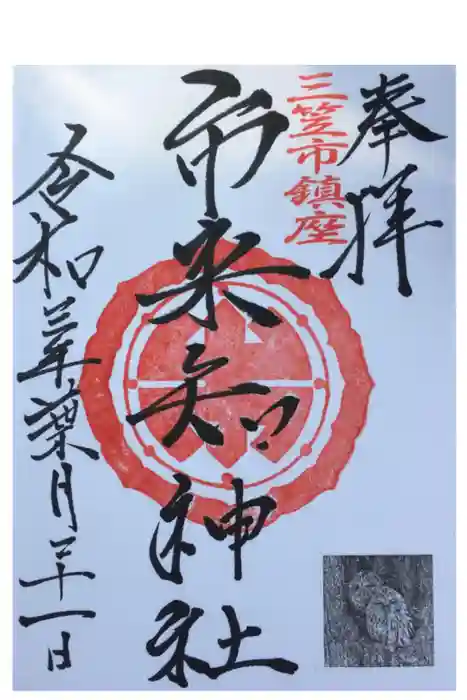 奉拝
三笠市鎮座
市来知神社
令和三年葉月二十一日